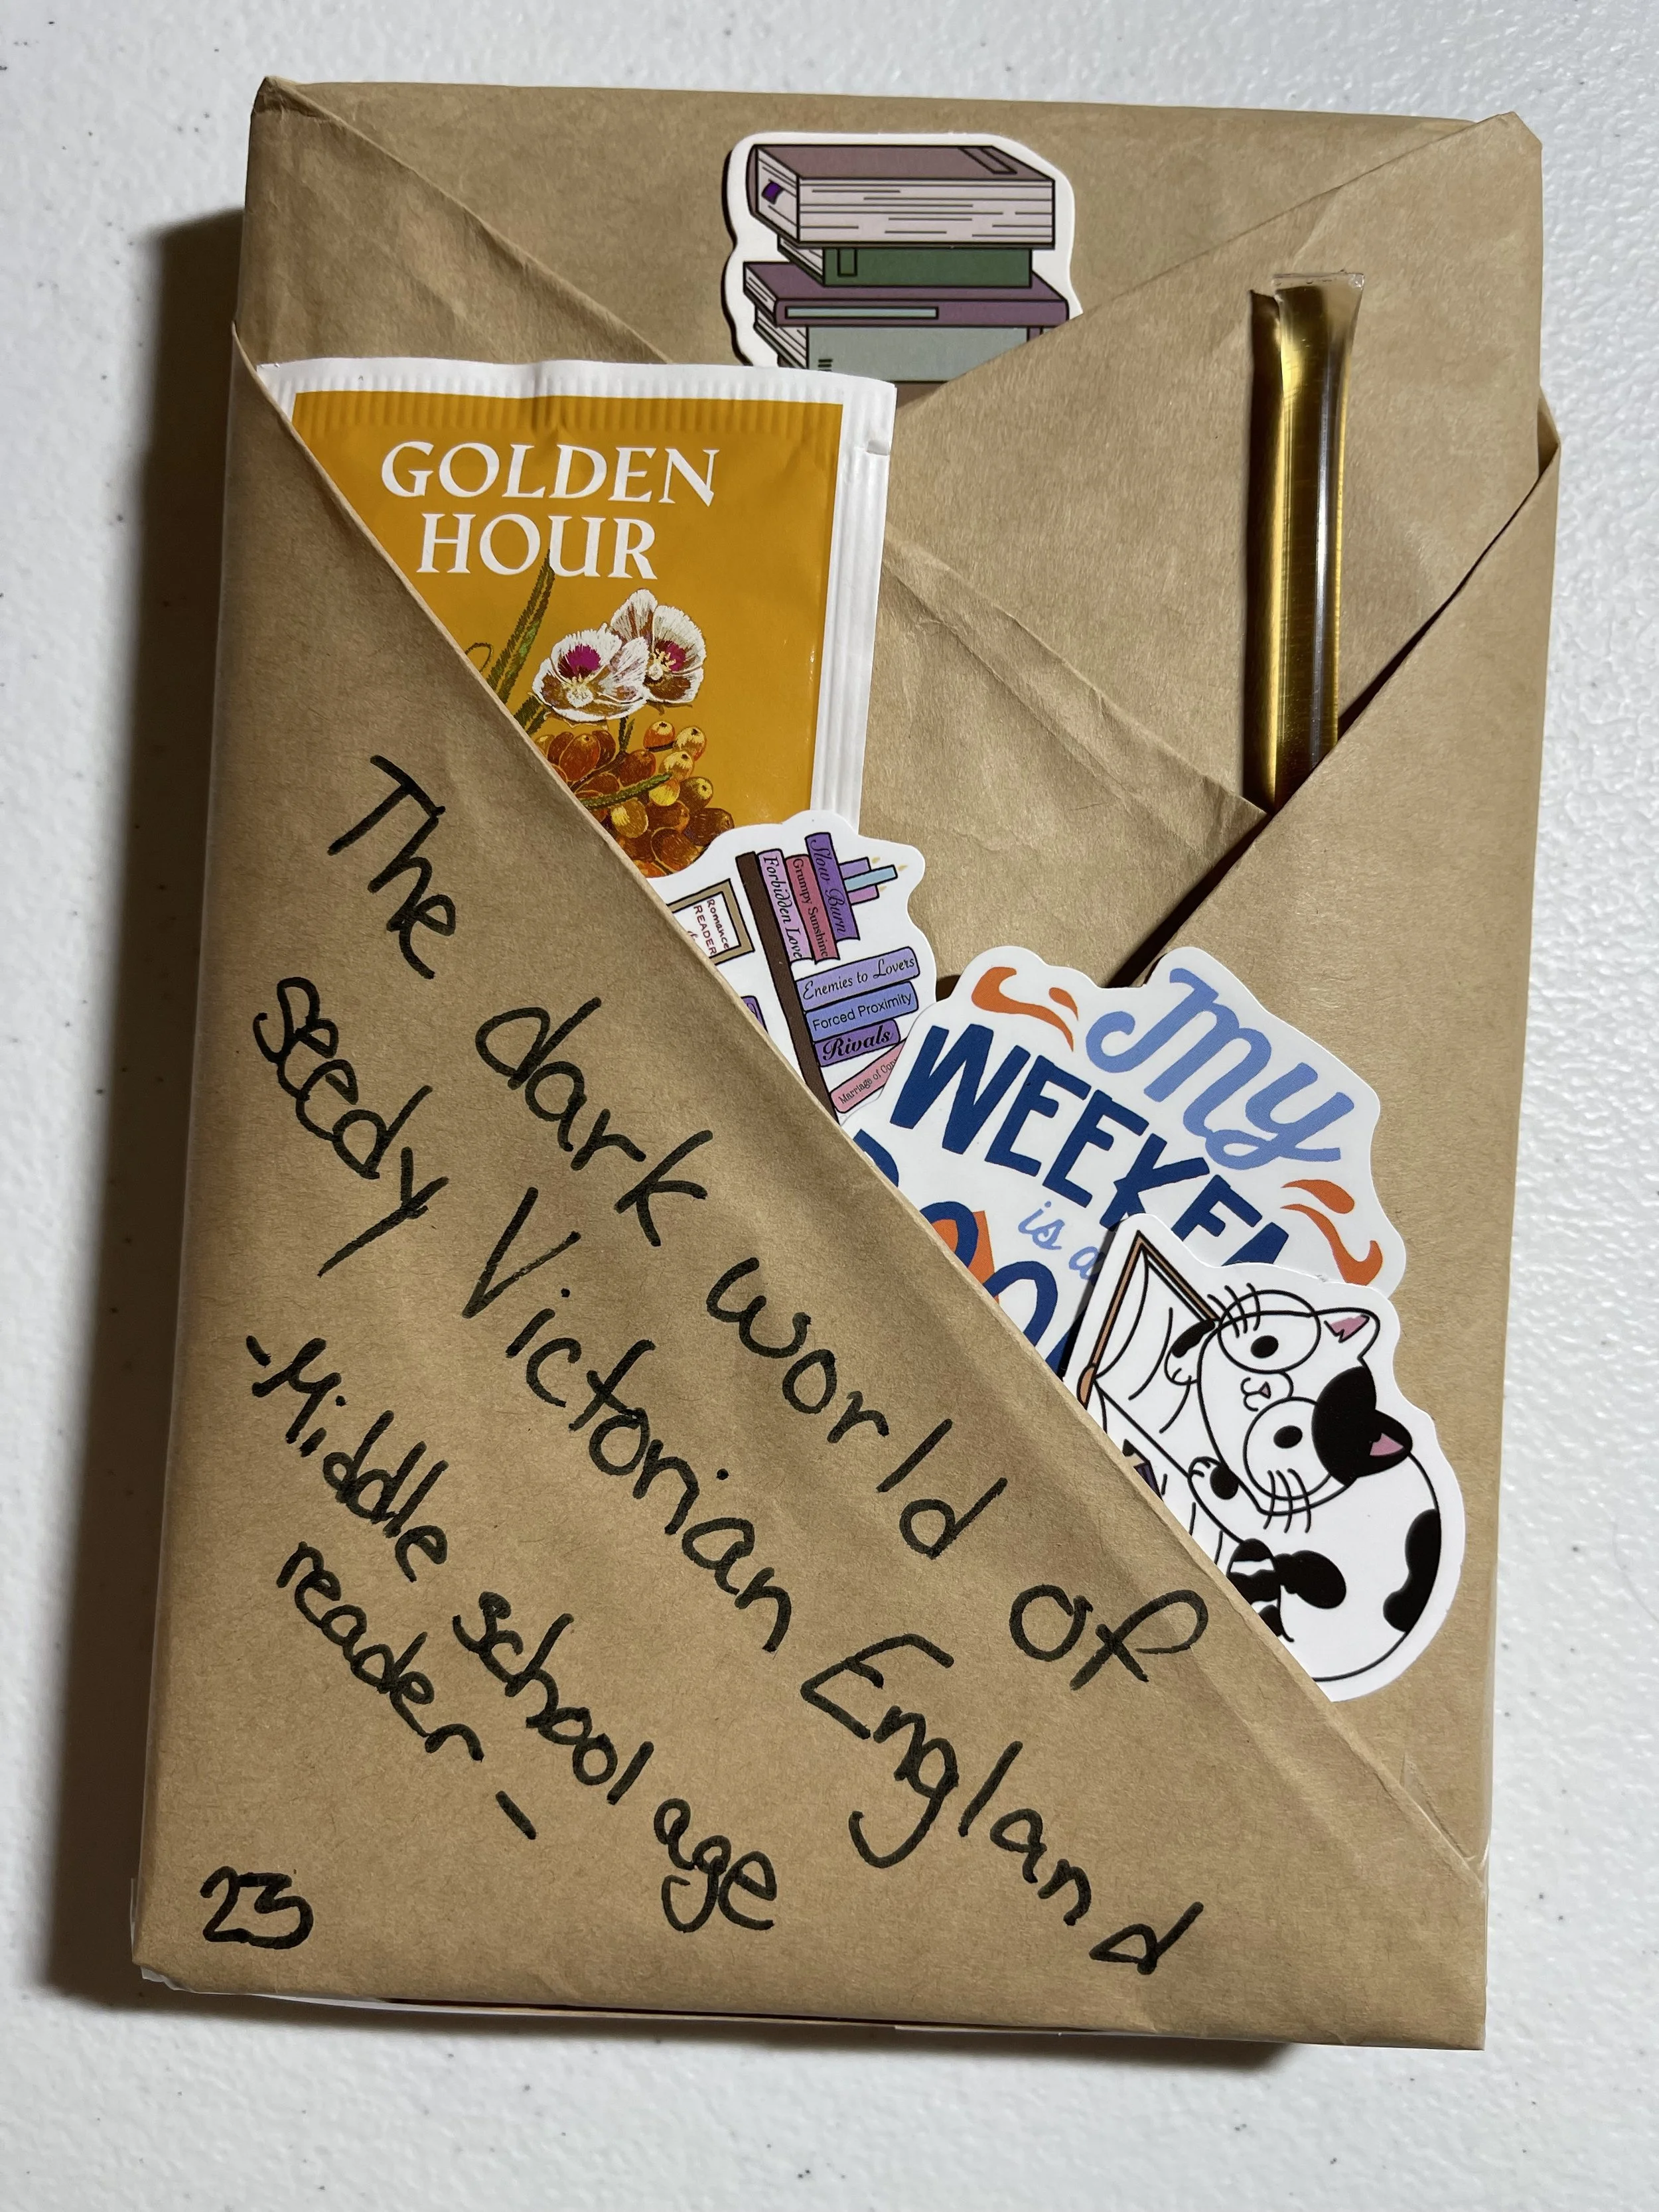 GOLDEN
HOUR
Slow Burn
Grumpy Sunshine
Forbidden Love
Romance
READER
Enemies to Lovers
Forced Proximity
Rivals
Marriage of
My
WEEKEN
is a
The dark world of
seedy Victorian England
-Middle school age
reader-
23